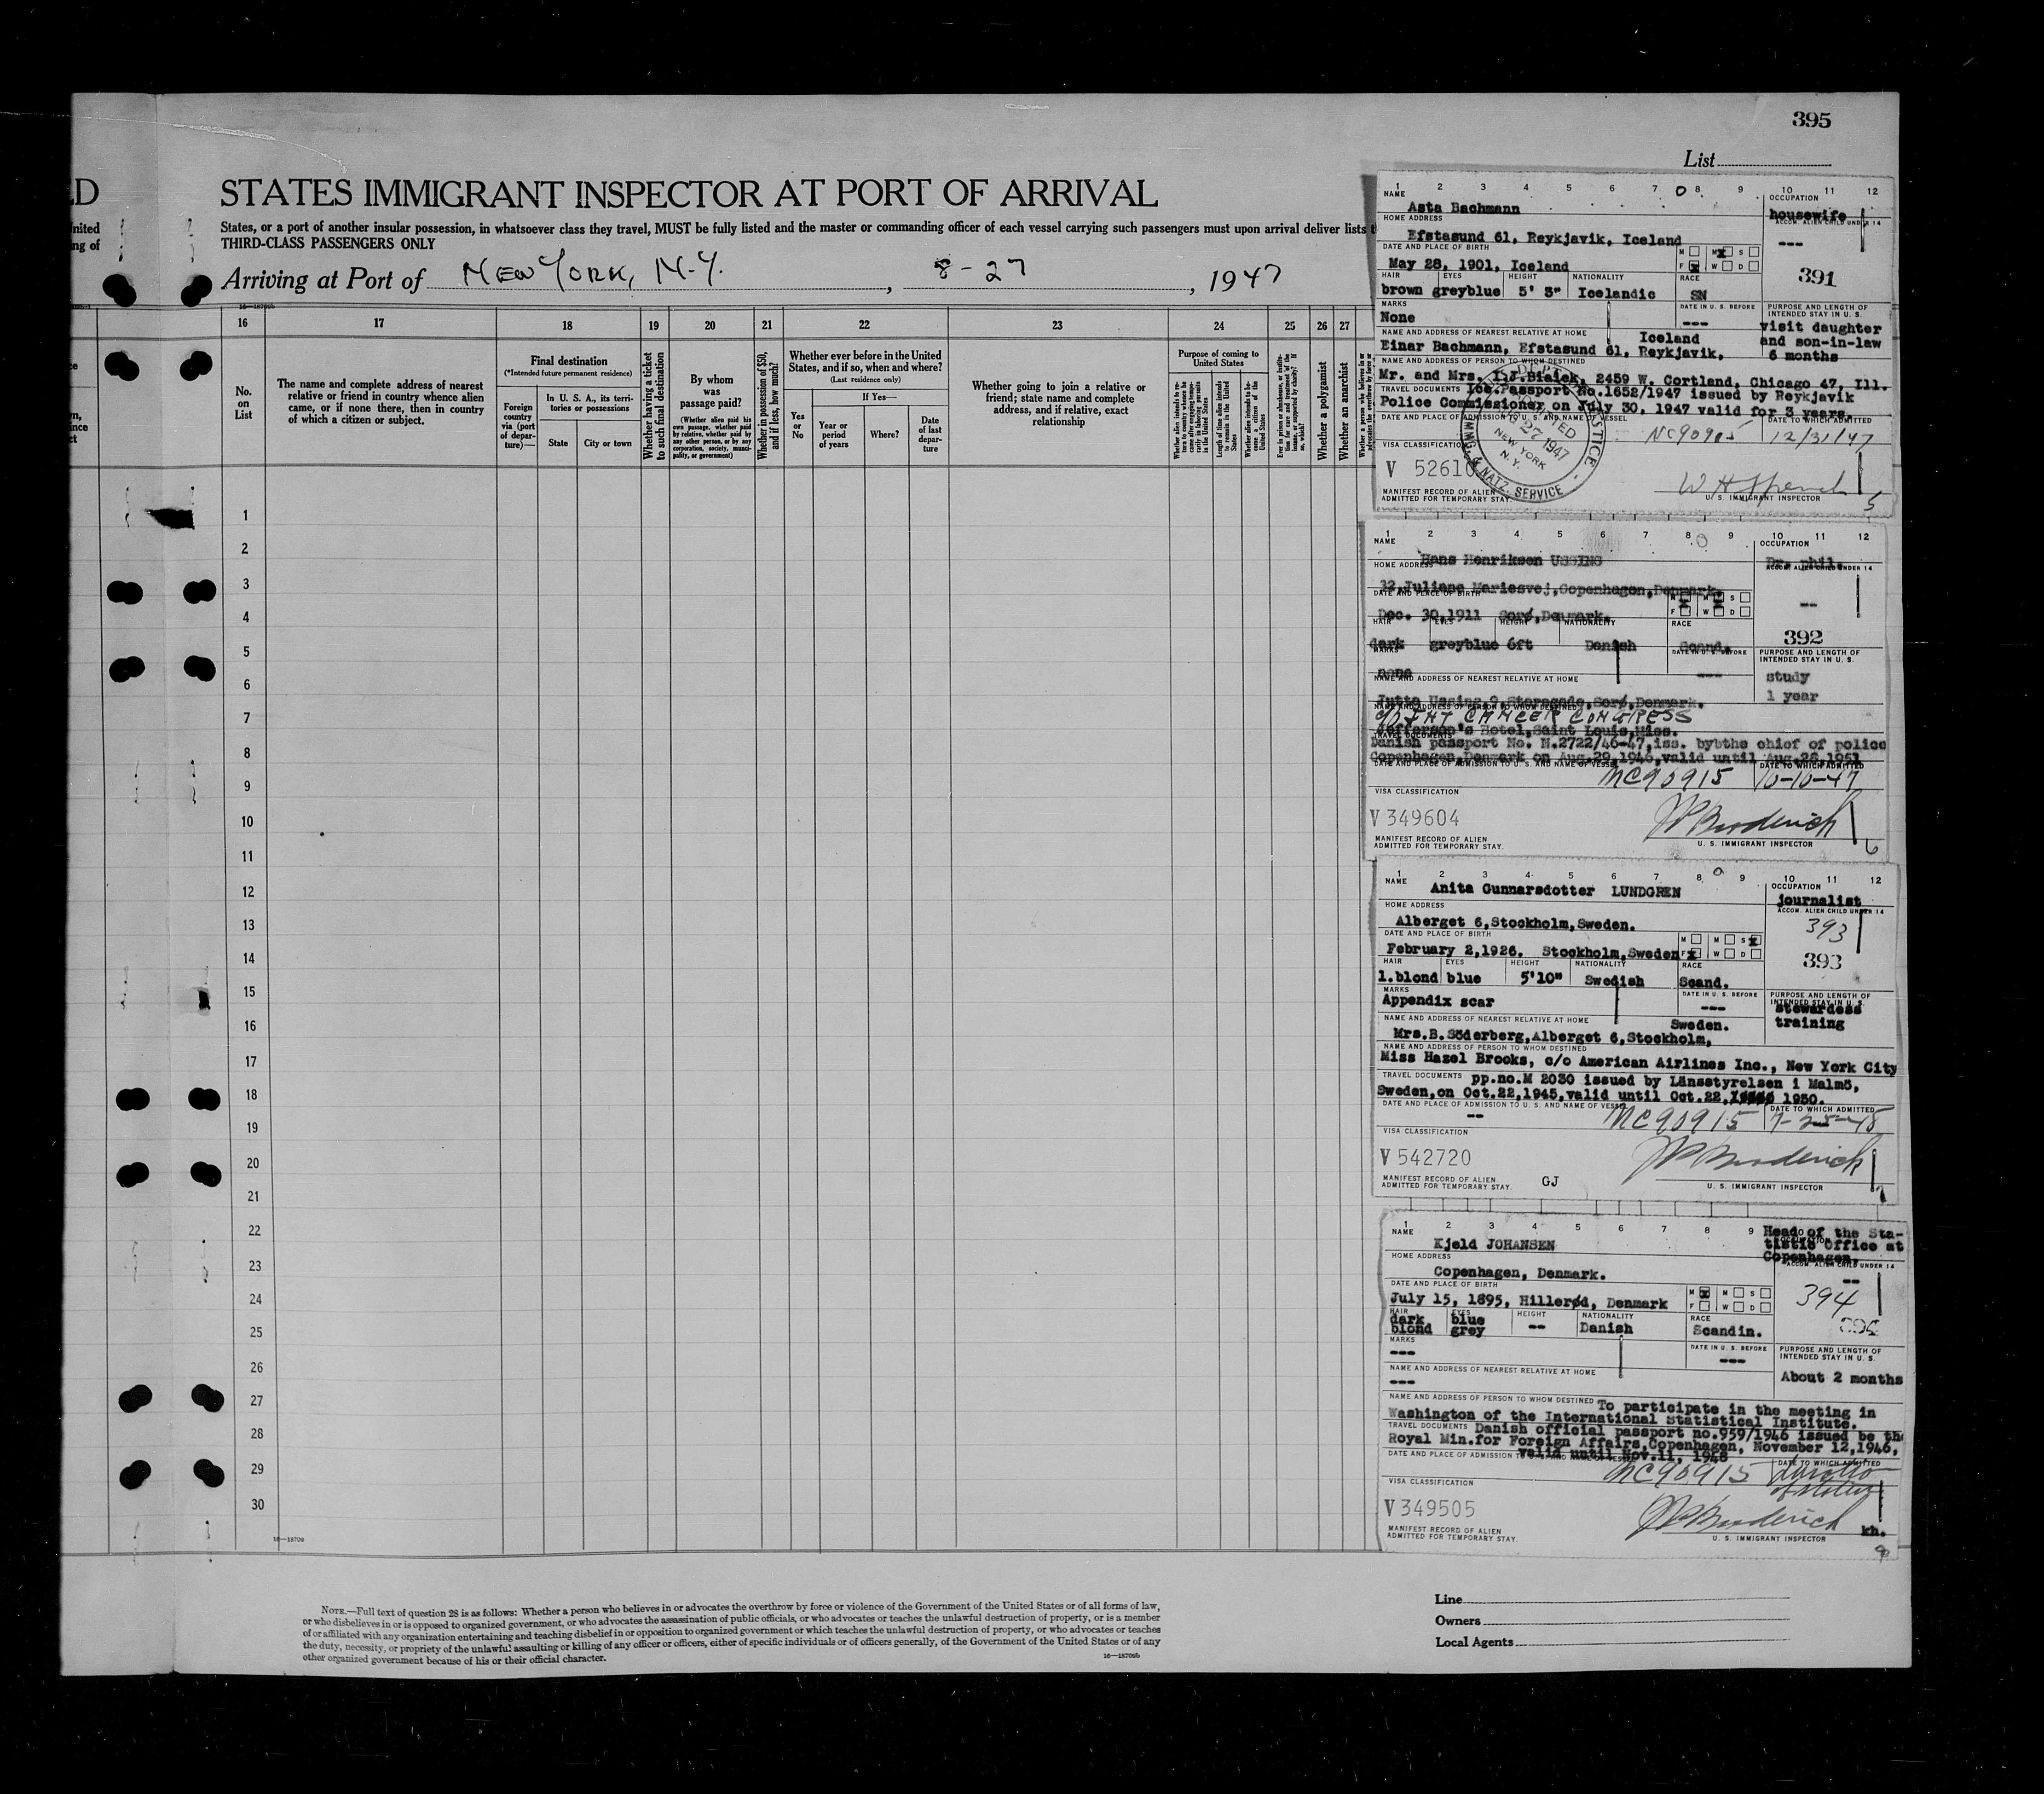 395
List
D
STATES IMMIGRANT INSPECTOR AT PORT OF ARRIVAL
nited
ng of
States, or a port of another insular possession, in whatsoever class they travel, MUST be fully listed and the master or commanding officer of each vessel carrying such passengers must upon arrival deliver lists
THIRD-CLASS PASSENGERS ONLY
Arriving at Port of NEW YORK, N.Y. , 8-27 , 1947
16 17 18 19 20 21 22 23 24 25 26 27
No. on List
The name and complete address of nearest
relative or friend in country whence alien
came, or if none there, then in country
of which a citizen or subject.
Final destination
(*Intended future permanent residence)
Foreign country via (port of departure)—
In U. S. A., its territories or possessions
State
City or town
Whether having a ticket to such final destination
By whom was passage paid?
(Whether alien paid his own passage, whether paid by relative, whether paid by any other person, or by any corporation, society, municipality, or government)
Whether in possession of $50, and if less, how much?
Whether ever before in the United States, and if so, when and where?
(Last residence only)
Yes or No
If Yes—
Year or period of years
Where?
Date of last departure
Whether going to join a relative or
friend; state name and complete
address, and if relative, exact
relationship
Purpose of coming to United States
Whether alien intends to return to country whence he came after engaging temporarily in laboring pursuits in the United States
Length of time alien intends to remain in the United States
Whether alien intends to become a citizen of the United States
Whether a polygamist
Whether an anarchist
1
2
3
4
5
6
7
8
9
10
11
12
13
14
15
16
17
18
19
20
21
22
23
24
25
26
27
28
29
30
16—18709
NOTE.—Full text of question 28 is as follows: Whether a person who believes in or advocates the overthrow by force or violence of the Government of the United States or of all forms of law,
or who disbelieves in or is opposed to organized government, or who advocates the assassination of public officials, or who advocates or teaches the unlawful destruction of property, or is a member
of or affiliated with any organization entertaining and teaching disbelief in or opposition to organized government or which teaches the unlawful destruction of property, or who advocates or teaches
the duty, necessity, or propriety of the unlawful assaulting or killing of any officer or officers, either of specific individuals or of officers generally, of the Government of the United States or of any
other organized government because of his or their official character.
16—18709b
1 2 3 4 5 6 7 8 9 10 11 12
NAME OCCUPATION
Asta Bachmann housewife
HOME ADDRESS ACCOM. ALIEN CHILD UNDER 14
Efstasund 61, Reykjavik, Iceland ---
DATE AND PLACE OF BIRTH M M S
May 28, 1901, Iceland F W D 391
HAIR EYES HEIGHT NATIONALITY RACE
brown greyblue 5' 3" Icelandic SN
MARKS DATE IN U. S. BEFORE PURPOSE AND LENGTH OF INTENDED STAY IN U. S.
None --- visit daughter
NAME AND ADDRESS OF NEAREST RELATIVE AT HOME Iceland and son-in-law
Einar Bachmann, Efstasund 61, Reykjavik, 6 months
NAME AND ADDRESS OF PERSON TO WHOM DESTINED
Mr. and Mrs. Bialek, 2459 W. Cortland, Chicago 47, Ill.
TRAVEL DOCUMENTS Passport No.1652/1947 issued by Reykjavik
Police Commissioner on July 30, 1947 valid for 3 years.
DATE AND PLACE OF ADMISSION TO U. S. AND NAME OF VESSEL DATE TO WHICH ADMITTED
NC90915 12/31/47
VISA CLASSIFICATION
V 52610
27 1947
NEW YORK
N. Y.
IMMIG. & NATZ. SERVICE
MANIFEST RECORD OF ALIEN
ADMITTED FOR TEMPORARY STAY.
U. S. IMMIGRANT INSPECTOR
5
1 2 3 4 5 6 7 8 9 10 11 12
NAME OCCUPATION
Hans Henriksen USSING Dr. phil.
HOME ADDRESS ACCOM. ALIEN CHILD UNDER 14
32,Juliane Mariesvej,Copenhagen,Denmark. --
DATE AND PLACE OF BIRTH M M S
Dec. 30,1911 Sorø,Denmark. F W D
HAIR EYES HEIGHT NATIONALITY RACE 392
dark greyblue 6ft Danish Scand.
MARKS DATE IN U. S. BEFORE PURPOSE AND LENGTH OF INTENDED STAY IN U. S.
none --- study
NAME AND ADDRESS OF NEAREST RELATIVE AT HOME 1 year
Jutta Ussing,9,Storegade,Sorø,Denmark.
NAME AND ADDRESS OF PERSON TO WHOM DESTINED
c/o INT CANCER CONGRESS
Jefferson's Hotel,Saint Louis,Miss.
TRAVEL DOCUMENTS
Danish passport No. N.2722/46-47,iss. bybthe chief of police
Copenhagen,Denmark on Aug.29,1946,valid until Aug.28,1951
DATE AND PLACE OF ADMISSION TO U. S. AND NAME OF VESSEL DATE TO WHICH ADMITTED
NC90915 10-10-47
VISA CLASSIFICATION
V 349604
MANIFEST RECORD OF ALIEN
ADMITTED FOR TEMPORARY STAY.
U. S. IMMIGRANT INSPECTOR
6
1 2 3 4 5 6 7 8 9 10 11 12
NAME OCCUPATION
Anita Gunnarsdotter LUNDGREN journalist
HOME ADDRESS ACCOM. ALIEN CHILD UNDER 14
Alberget 6,Stockholm,Sweden. 393
DATE AND PLACE OF BIRTH M M S
February 2,1926. Stockholm,Sweden F W D 393
HAIR EYES HEIGHT NATIONALITY RACE
l.blond blue 5'10" Swedish Scand.
MARKS DATE IN U. S. BEFORE PURPOSE AND LENGTH OF INTENDED STAY IN U. S.
Appendix scar --- stewardess
NAME AND ADDRESS OF NEAREST RELATIVE AT HOME Sweden. training
Mrs.B.Söderberg,Alberget 6,Stockholm,
NAME AND ADDRESS OF PERSON TO WHOM DESTINED
Miss Hazel Brooks, c/o American Airlines Inc., New York City
TRAVEL DOCUMENTS pp.no.M 2030 issued by Länsstyrelsen i Malmö,
Sweden,on Oct.22,1945,valid until Oct.22, 1950.
DATE AND PLACE OF ADMISSION TO U. S. AND NAME OF VESSEL DATE TO WHICH ADMITTED
-- NC90915 7-25-48
VISA CLASSIFICATION
V 542720
MANIFEST RECORD OF ALIEN
ADMITTED FOR TEMPORARY STAY. GJ
U. S. IMMIGRANT INSPECTOR
1 2 3 4 5 6 7 8 9
NAME Head of the Sta-
Kjeld JOHANSEN tistic Office at
HOME ADDRESS Copenhagen.
Copenhagen, Denmark. ACCOM. ALIEN CHILD UNDER 14
DATE AND PLACE OF BIRTH M M S --
July 15, 1895, Hillerød, Denmark F W D 394
HAIR EYES HEIGHT NATIONALITY RACE
dark blond blue grey -- Danish Scandin.
MARKS DATE IN U. S. BEFORE PURPOSE AND LENGTH OF INTENDED STAY IN U. S.
--- ---
NAME AND ADDRESS OF NEAREST RELATIVE AT HOME About 2 months
---
NAME AND ADDRESS OF PERSON TO WHOM DESTINED To participate in the meeting in
Washington of the International Statistical Institute.
TRAVEL DOCUMENTS Danish official passport no.959/1946 issued be the
Royal Min.for Foreign Affairs,Copenhagen, November 12,1946,
DATE AND PLACE OF ADMISSION TO U. S. AND NAME OF VESSEL valid until Nov.11, 1948
NC90915 DATE TO WHICH ADMITTED
VISA CLASSIFICATION
V 349505
MANIFEST RECORD OF ALIEN
ADMITTED FOR TEMPORARY STAY.
U. S. IMMIGRANT INSPECTOR
kh.
Line
Owners
Local Agents